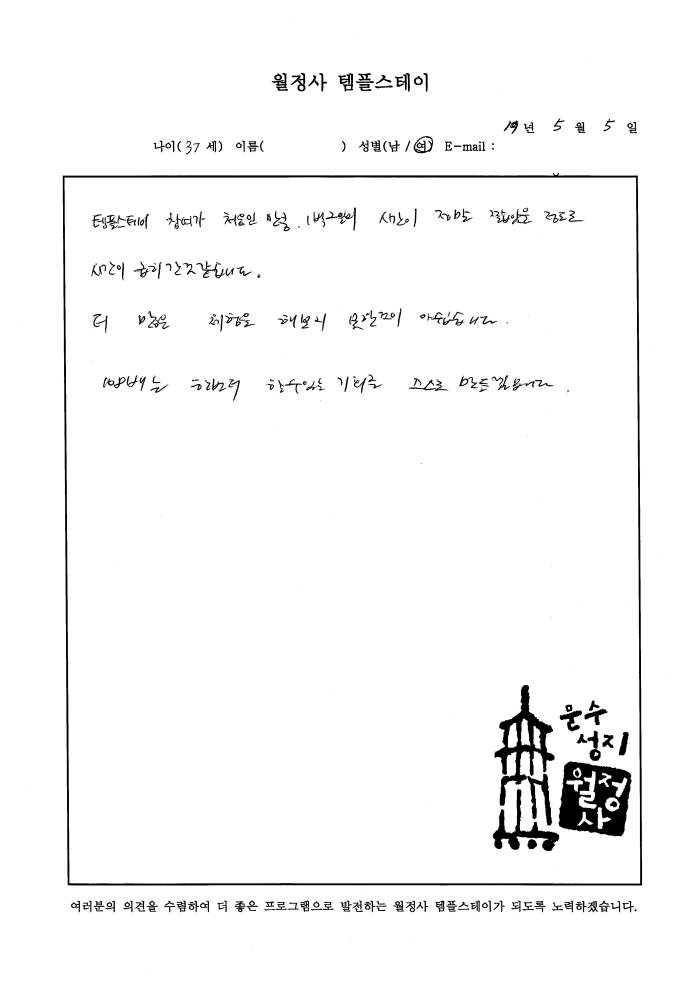 월정사 템플스테이
19년 5월 5일
나이(37 세) 이름( ) 성별(남 / 여) E-mail :
템플스테이 참여가 처음인 만큼, 1박2일의 시간이 정말 짧았을 정도로
시간이 급히 간것 같습니다.
더 많은 체험을 해보지 못한것이 아쉽습니다.
108배는 한번더 할수있는 기회를 스스로 만들겁니다.
문수
성지
월정
사
여러분의 의견을 수렴하여 더 좋은 프로그램으로 발전하는 월정사 템플스테이가 되도록 노력하겠습니다.